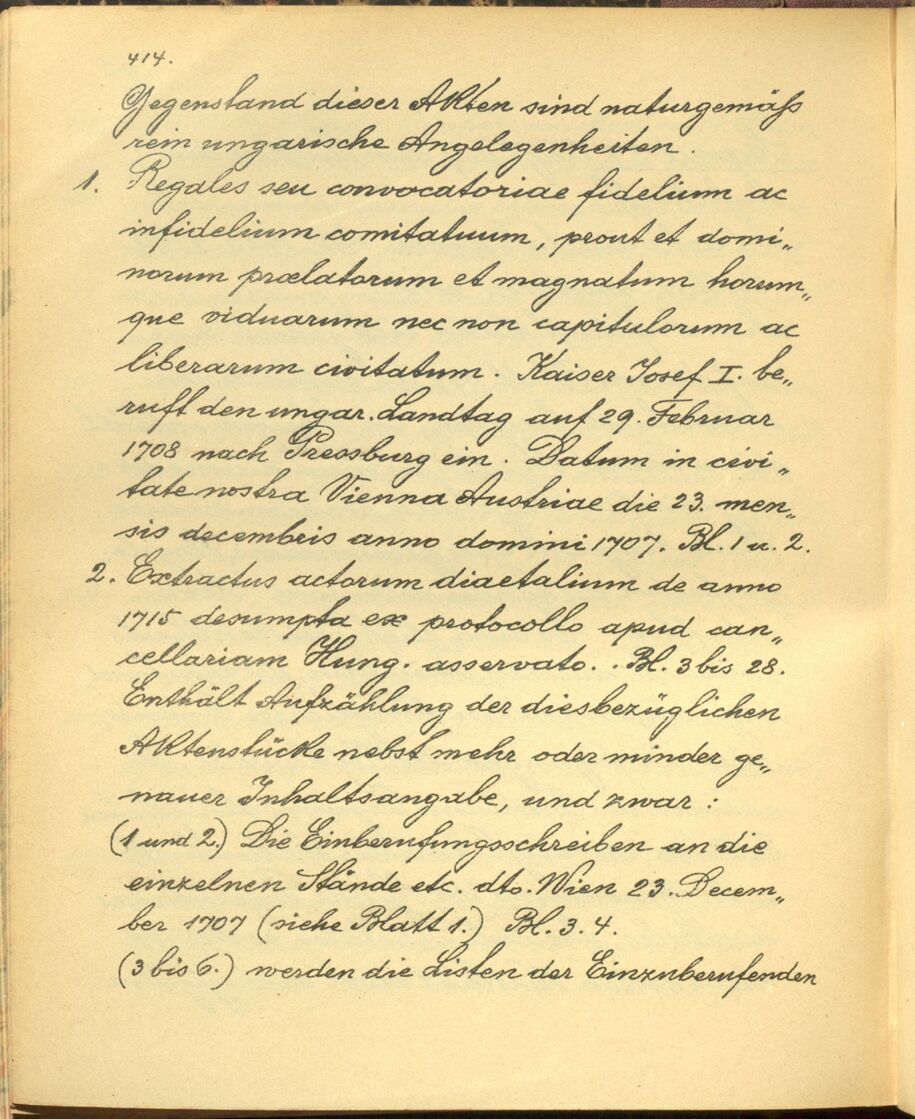 414.
Gegenstand dieser Akten sind naturgemäß
rein ungarische Angelegenheiten.
1. Regales seu convocatoriae fidelium ac
infidelium comitatuum, prout et domi„
norum praelatorum et magnatum horum„
que viduarum nec non capitulorum ac
liberarum civitatum. Kaiser Josef I. be„
ruft den ungar. Landtag auf 29. Februar
1708 nach Pressburg ein. Datum in civi„
tate nostra Vienna Austriae die 23. men„
sis decembris anno domini 1707. Bl. 1 u. 2.
2. Extractus actorum diaetalium de anno
1715 desumpta ex protocollo apud can„
cellariam Hung. asservato. . Bl. 3 bis 28.
Enthält Aufzählung der diesbezüglichen
Aktenstücke nebst mehr oder minder ge„
nauer Inhaltsangabe, und zwar :
(1 und 2.) Die Einberufungsschreiben an die
einzelnen Stände etc. dto. Wien 23. Decem„
ber 1707 (siehe Blatt 1.) Bl. 3. 4.
(3 bis 6.) werden die Listen der Einzuberufenden